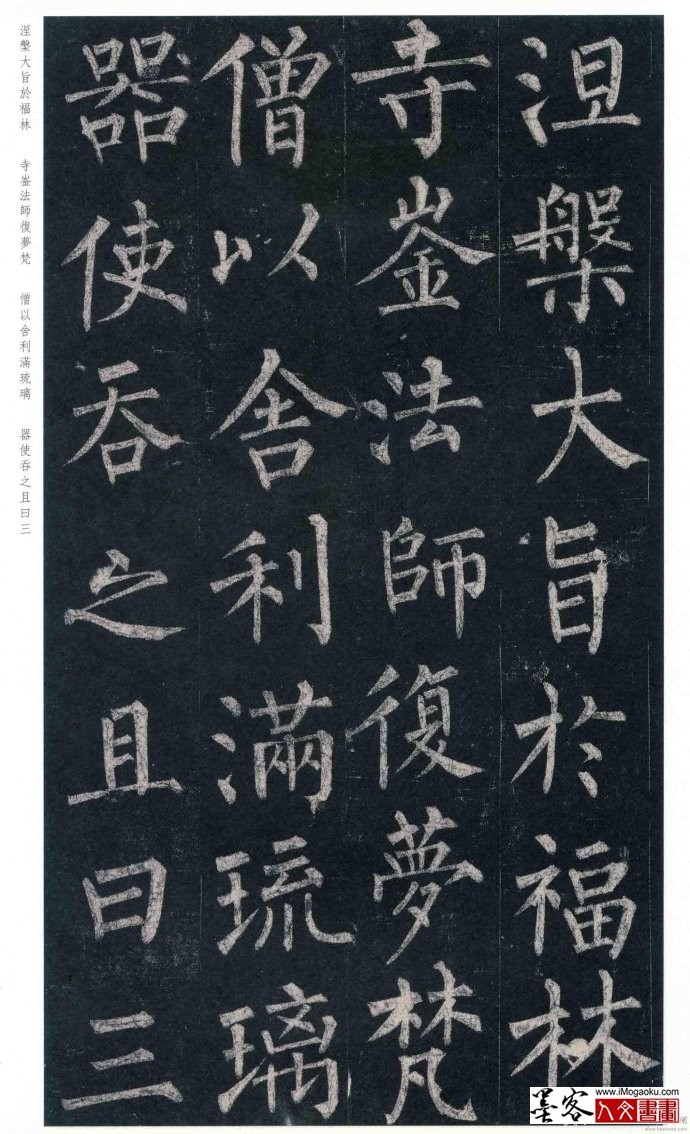 涅槃大旨於福林
寺崟法師復夢梵
僧以舍利滿琉璃
器使吞之且曰三
涅槃大旨於福林 寺崟法師復夢梵 僧以舍利滿琉璃 器使吞之且曰三
www.iMogaoku.com
墨客 人文書画